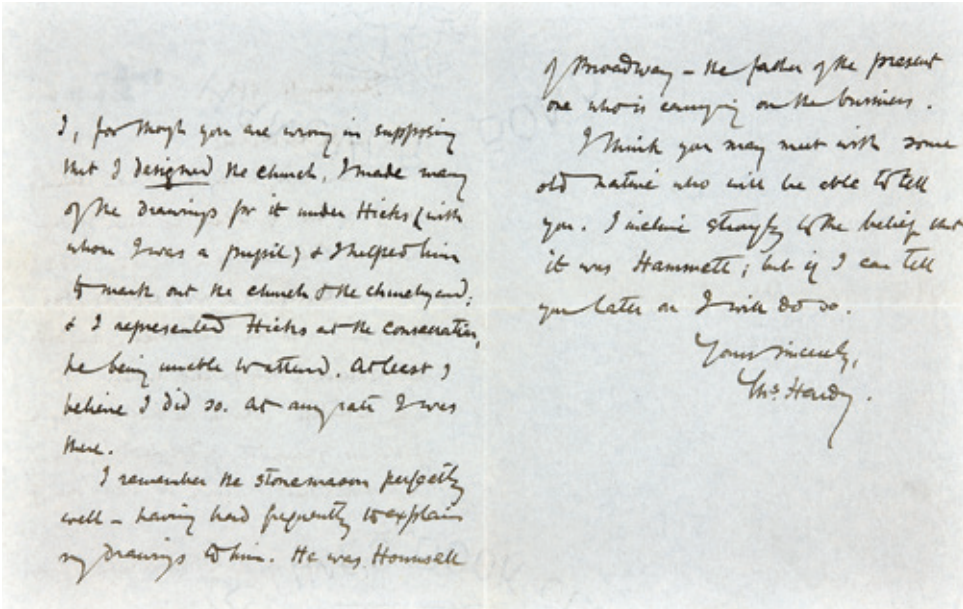 I, for though you are wrong in supposing
that I designed the church, I made many
of the drawings for it under Hicks (with
whom I was a pupil) & I helped him
to mark out the church & the churchyard;
& I represented Hicks at the consecration,
he being unable to attend. At least I
believe I did so. At any rate I was
there.
I remember the stonemason perfectly
well – having had frequently to explain
my drawings to him. He was Hounsell
of Broadway – the father of the present
one who is carrying on the business.
I think you may meet with some
old native who will be able to tell
you. I incline strongly to the belief that
it was Hammett; but if I can tell
you later on I will do so.
Yours sincerely,
Th: Hardy.